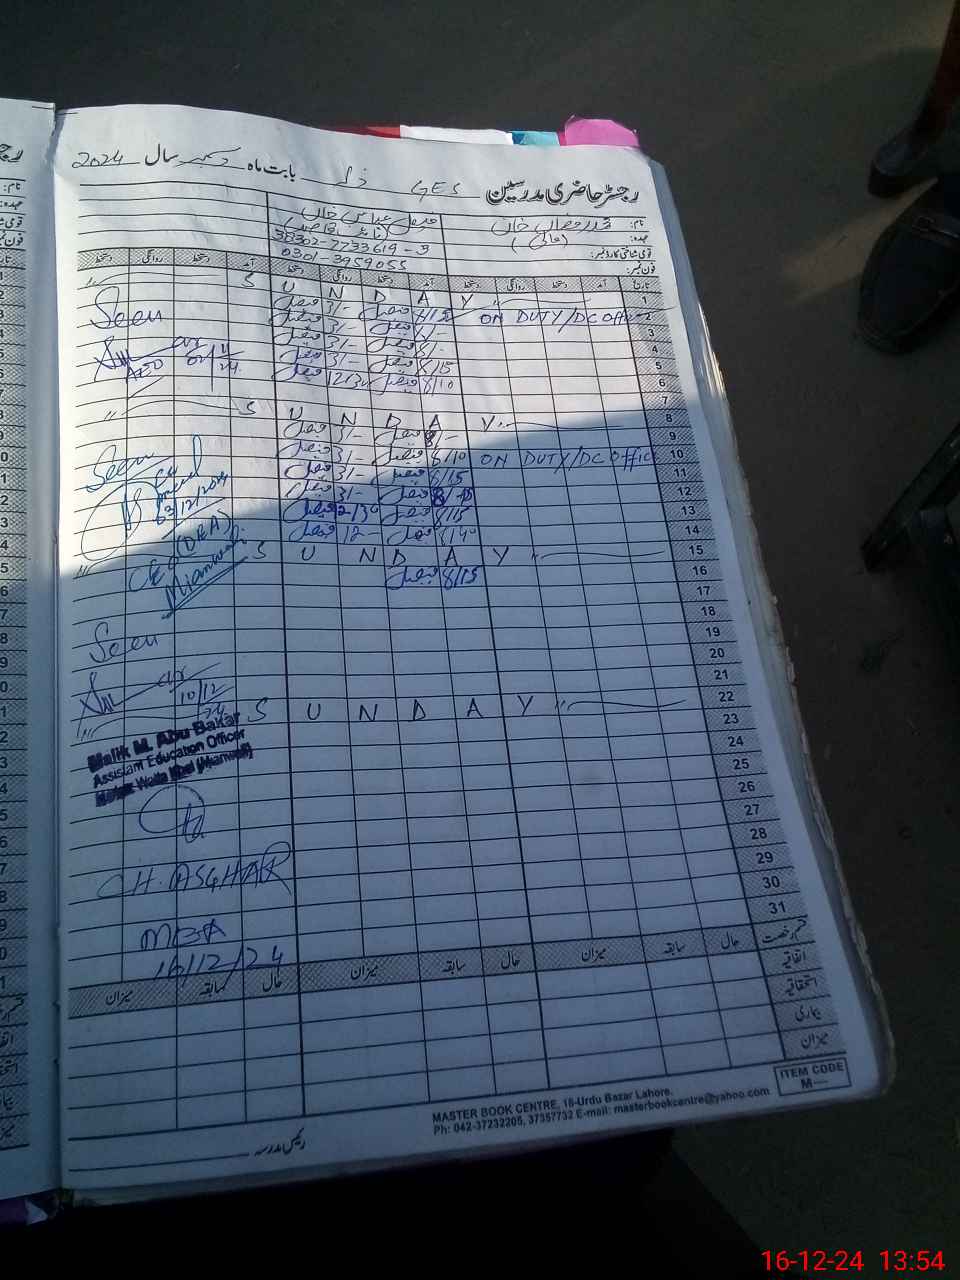 رجسٹر حاضری مدرسین GES بابت ماہ دسمبر سال 2024
نام:
عہدہ:
قومی شناختی کارڈ نمبر:
فون نمبر:
محمد رمضان خان
(مالی)
فیصل عباس خان
38302-7733619-9
0301-3959055
تاریخ آمد دستخط روانگی دستخط آمد دستخط روانگی دستخط آمد دستخط روانگی دستخط
1 S U N D A Y
2 ON DUTY/DC Office فیصل 3/- فیصل 8/15
3 فیصل 3/- فیصل 8/-
4 فیصل 3/- فیصل 8/-
5 فیصل 3/- فیصل 8/15
6 فیصل 12/30 فیصل 8/10
7
8 S U N D A Y
9 فیصل 3/- فیصل 8/-
10 ON DUTY/DC Office فیصل 3/- فیصل 8/10
11 فیصل 3/- فیصل 8/15
12 فیصل 3/- فیصل
13 فیصل 2/30 فیصل 8/15
14 فیصل 12- فیصل 8/40
15 S U N D A Y
16 فیصل 8/15
17
18
19
20
21
22 S U N D A Y
23
24
25
26
27
28
29
30
31
Seen
AEO
Seen
03/12/2024
CEO (DEA)
Mianwali
Seen
10/12
24
Malik M. Abu Bakar
Assistant Education Officer
CH. ASGHAR
MEA
16/12/24
قسم رخصت حال سابقہ میزان حال سابقہ میزان حال سابقہ میزان
اتفاقیہ
استحقاقیہ
بیماری
میزان
رئیس مدرسہ
MASTER BOOK CENTRE, 18-Urdu Bazar Lahore.
Ph: 042-37232205, 37357732 E-mail: masterbookcentre@yahoo.com
ITEM CODE
M----
16-12-24 13:54